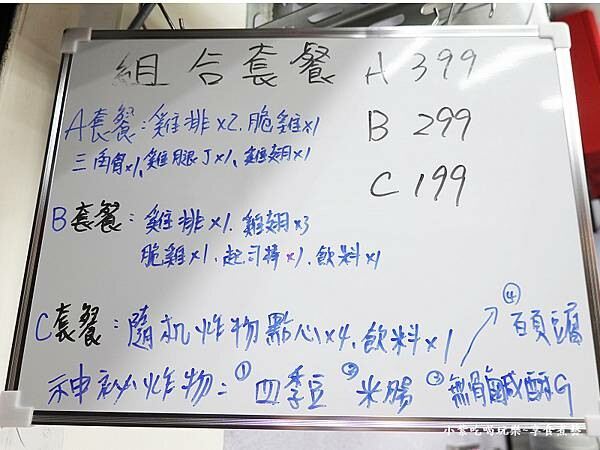 組合套餐 A 399
B 299
C 199
A套餐：雞排x2、脆雞x1
三角骨x1、雞腿Jx1、雞翅x1
B套餐：雞排x1、雞翅x3
脆雞x1、起司棒x1、飲料x1
C套餐：隨机炸物點心x4、飲料x1
④百頁豆腐
神祕炸物：①四季豆 ②米腸 ③無骨鹹酥G